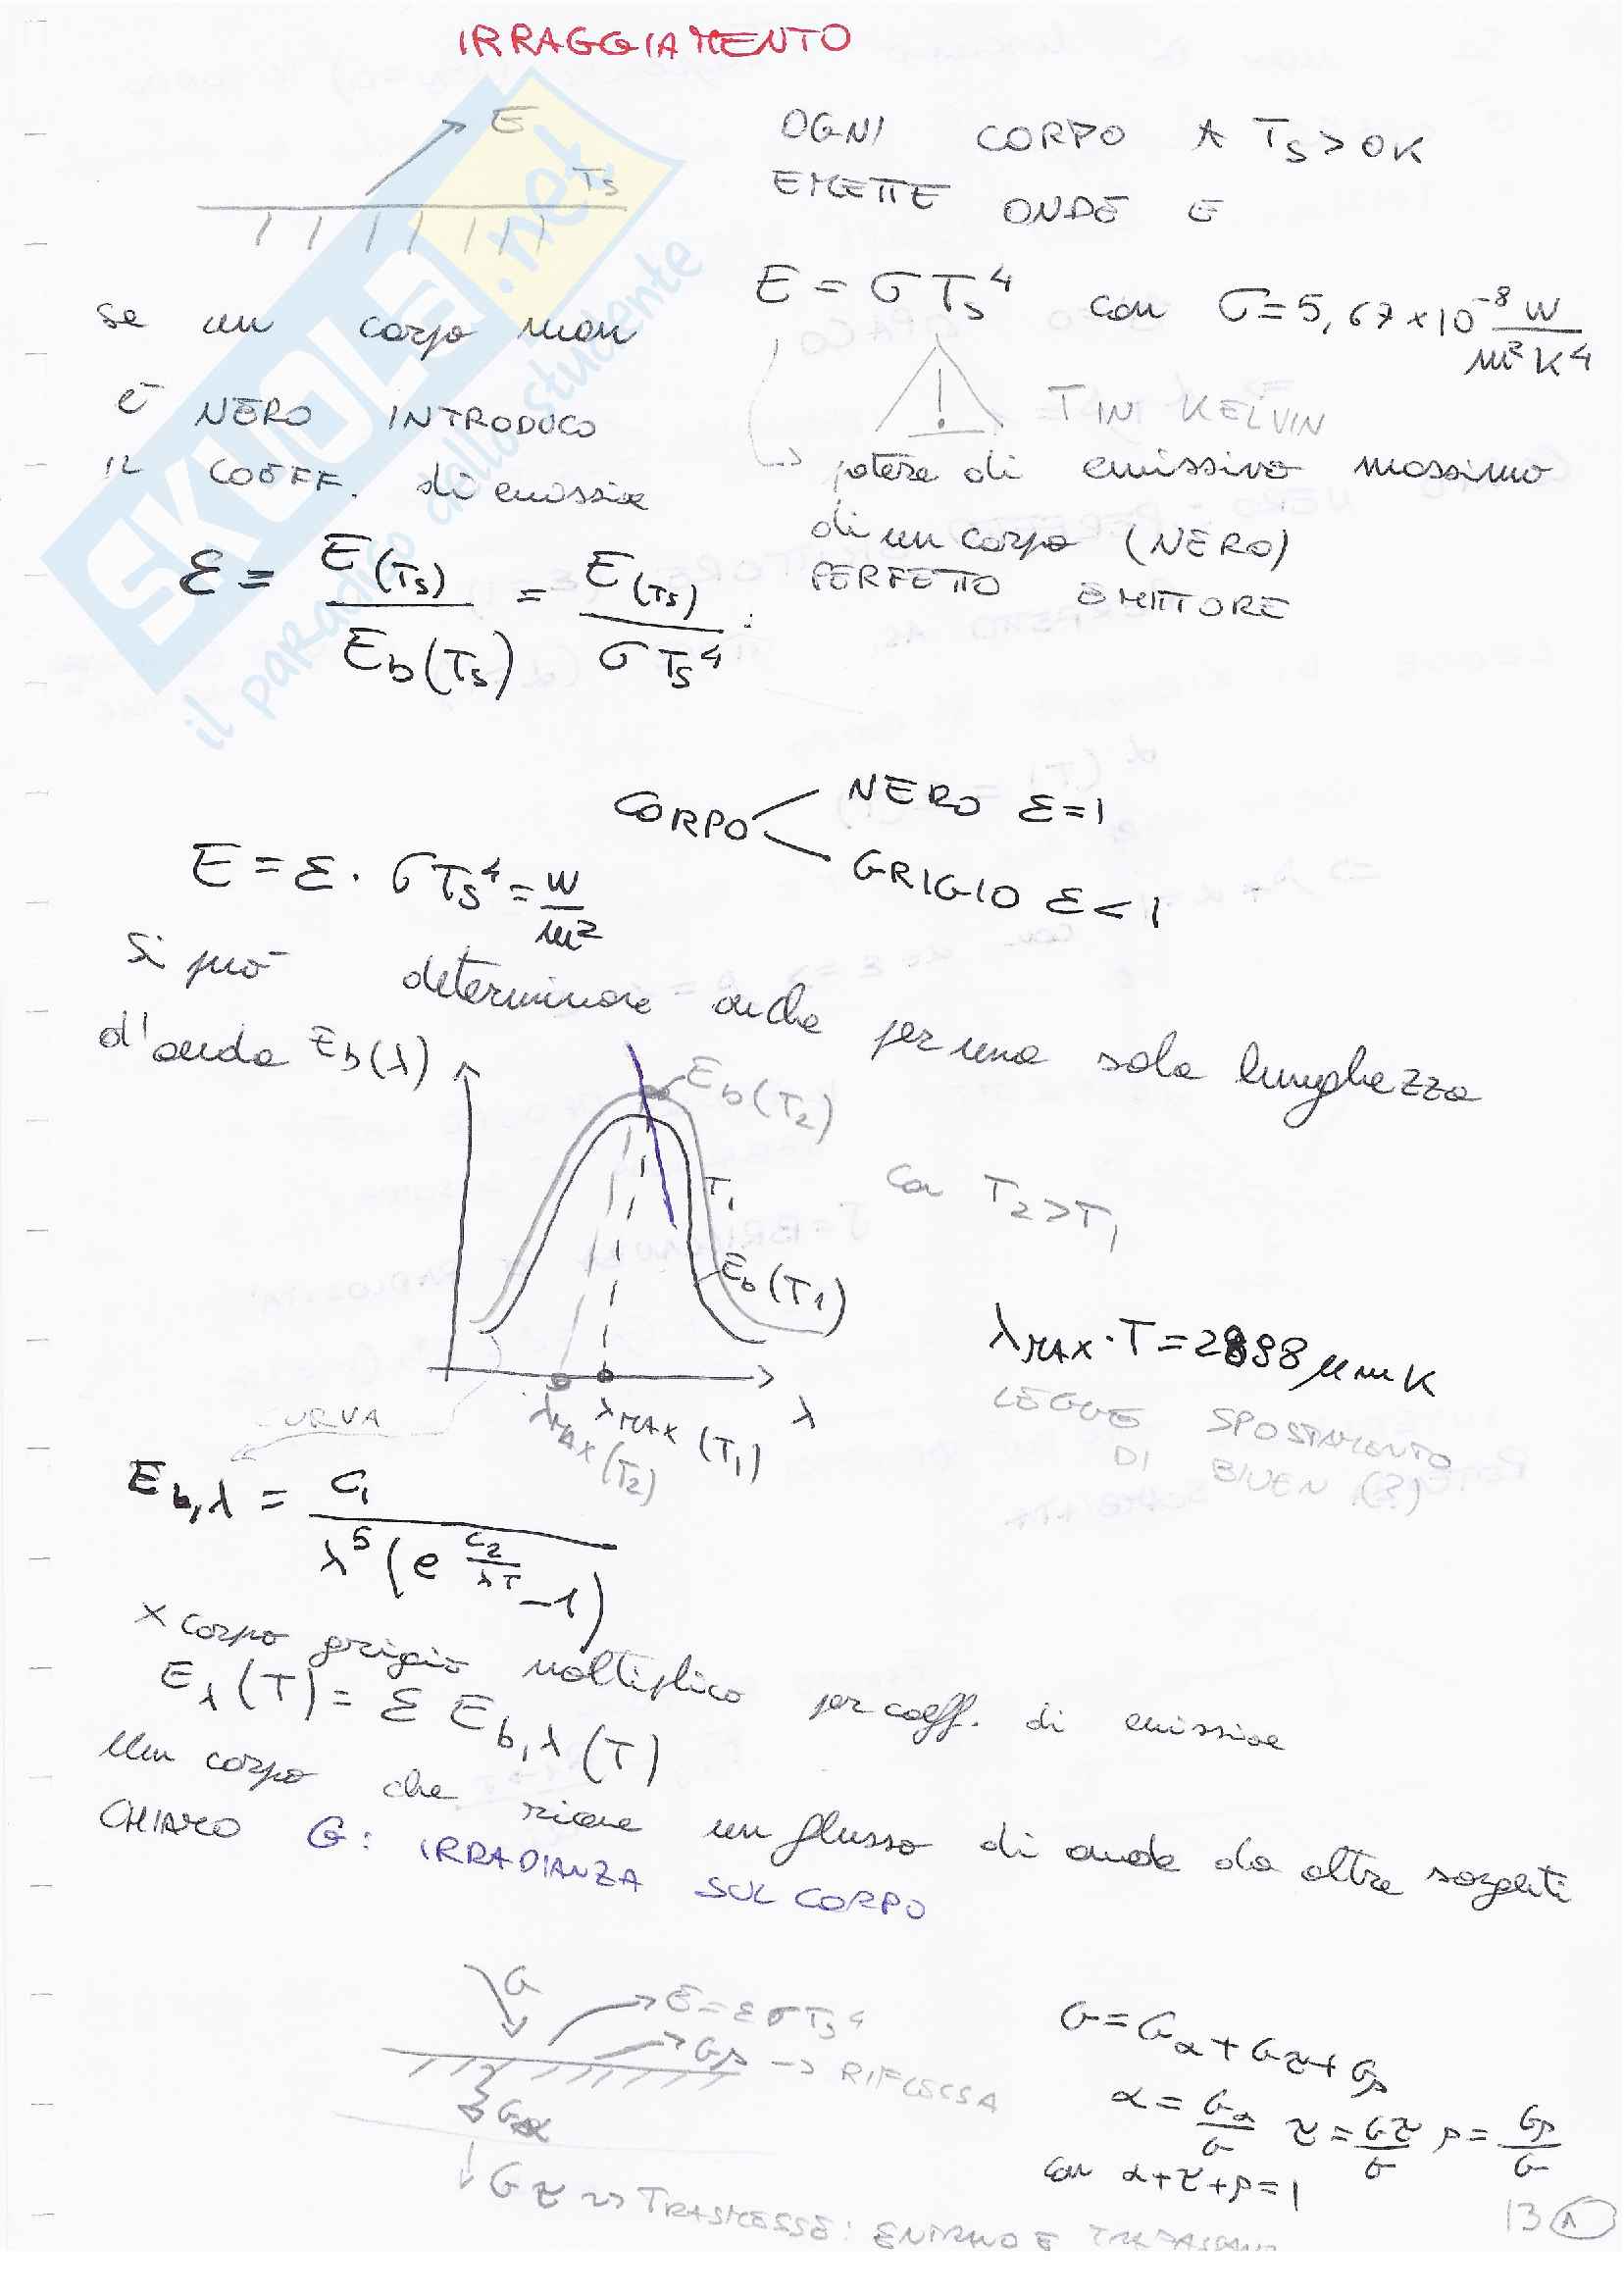 IRRAGGIAMENTO
E
Ts
OGNI CORPO A Ts > 0K
EMETTE ONDE E
E = σ Ts⁴ con σ = 5,67 × 10⁻⁸ W/m²K⁴
! T IN KELVIN
→ potere di emissivo massimo
di un corpo (NERO)
PERFETTO EMITTORE
se un corpo non
è NERO INTRODUCO
IL COEFF. di emissione
ε = E(Ts)/Eb(Ts) = E(Ts)/σTs⁴
SKUOLA.net
il paradiso dello studente
CORPO
NERO ε=1
GRIGIO ε<1
E = ε · σTs⁴ = W/m²
Si può determinare anche per una sola lunghezza
d'onda Eb(λ)
Eb(T2)
T1
Eb(T1)
con T2 > T1
λ
λMAX (T1)
λMAX (T2)
λMAX · T = 2898 μm K
LEGGE SPOSTAMENTO
DI BIUEN (?)
CURVA
Eb,λ = C1 / λ⁵ (e^(C2/λT) - 1)
x corpo grigio moltiplico per coeff. di emissione
Eλ(T) = ε Eb,λ(T)
Un corpo che riceve un flusso di onde da altre sorgenti
CHIAMO G: IRRADIANZA SUL CORPO
G
E = εσTs⁴
Gρ → RIFLESSA
Gα
Gτ → TRASMESSE: ENTRANO E
G = Gα + Gτ + Gρ
α = Gα/G τ = Gτ/G ρ = Gρ/G
con α+τ+ρ=1
13 A